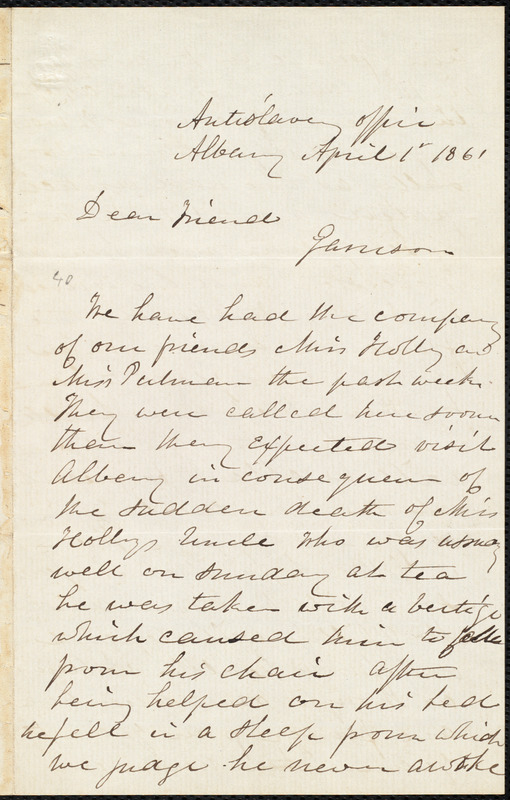 Antislavery office
Albany April 1st 1861
Dear Friend
Garrison
40
We have had the company
of our friends Miss Holley and
Miss Putman the past week.
They were called here sooner
than they expected visit
Albany in consequence of
the sudden death of Miss
Holleys Uncle who was usualy
well on Sunday at tea
he was taken with a vertigo
which caused him to fall
from his chair after
being helped on his bed
he fell in a sleep from which
we judge he never awoke